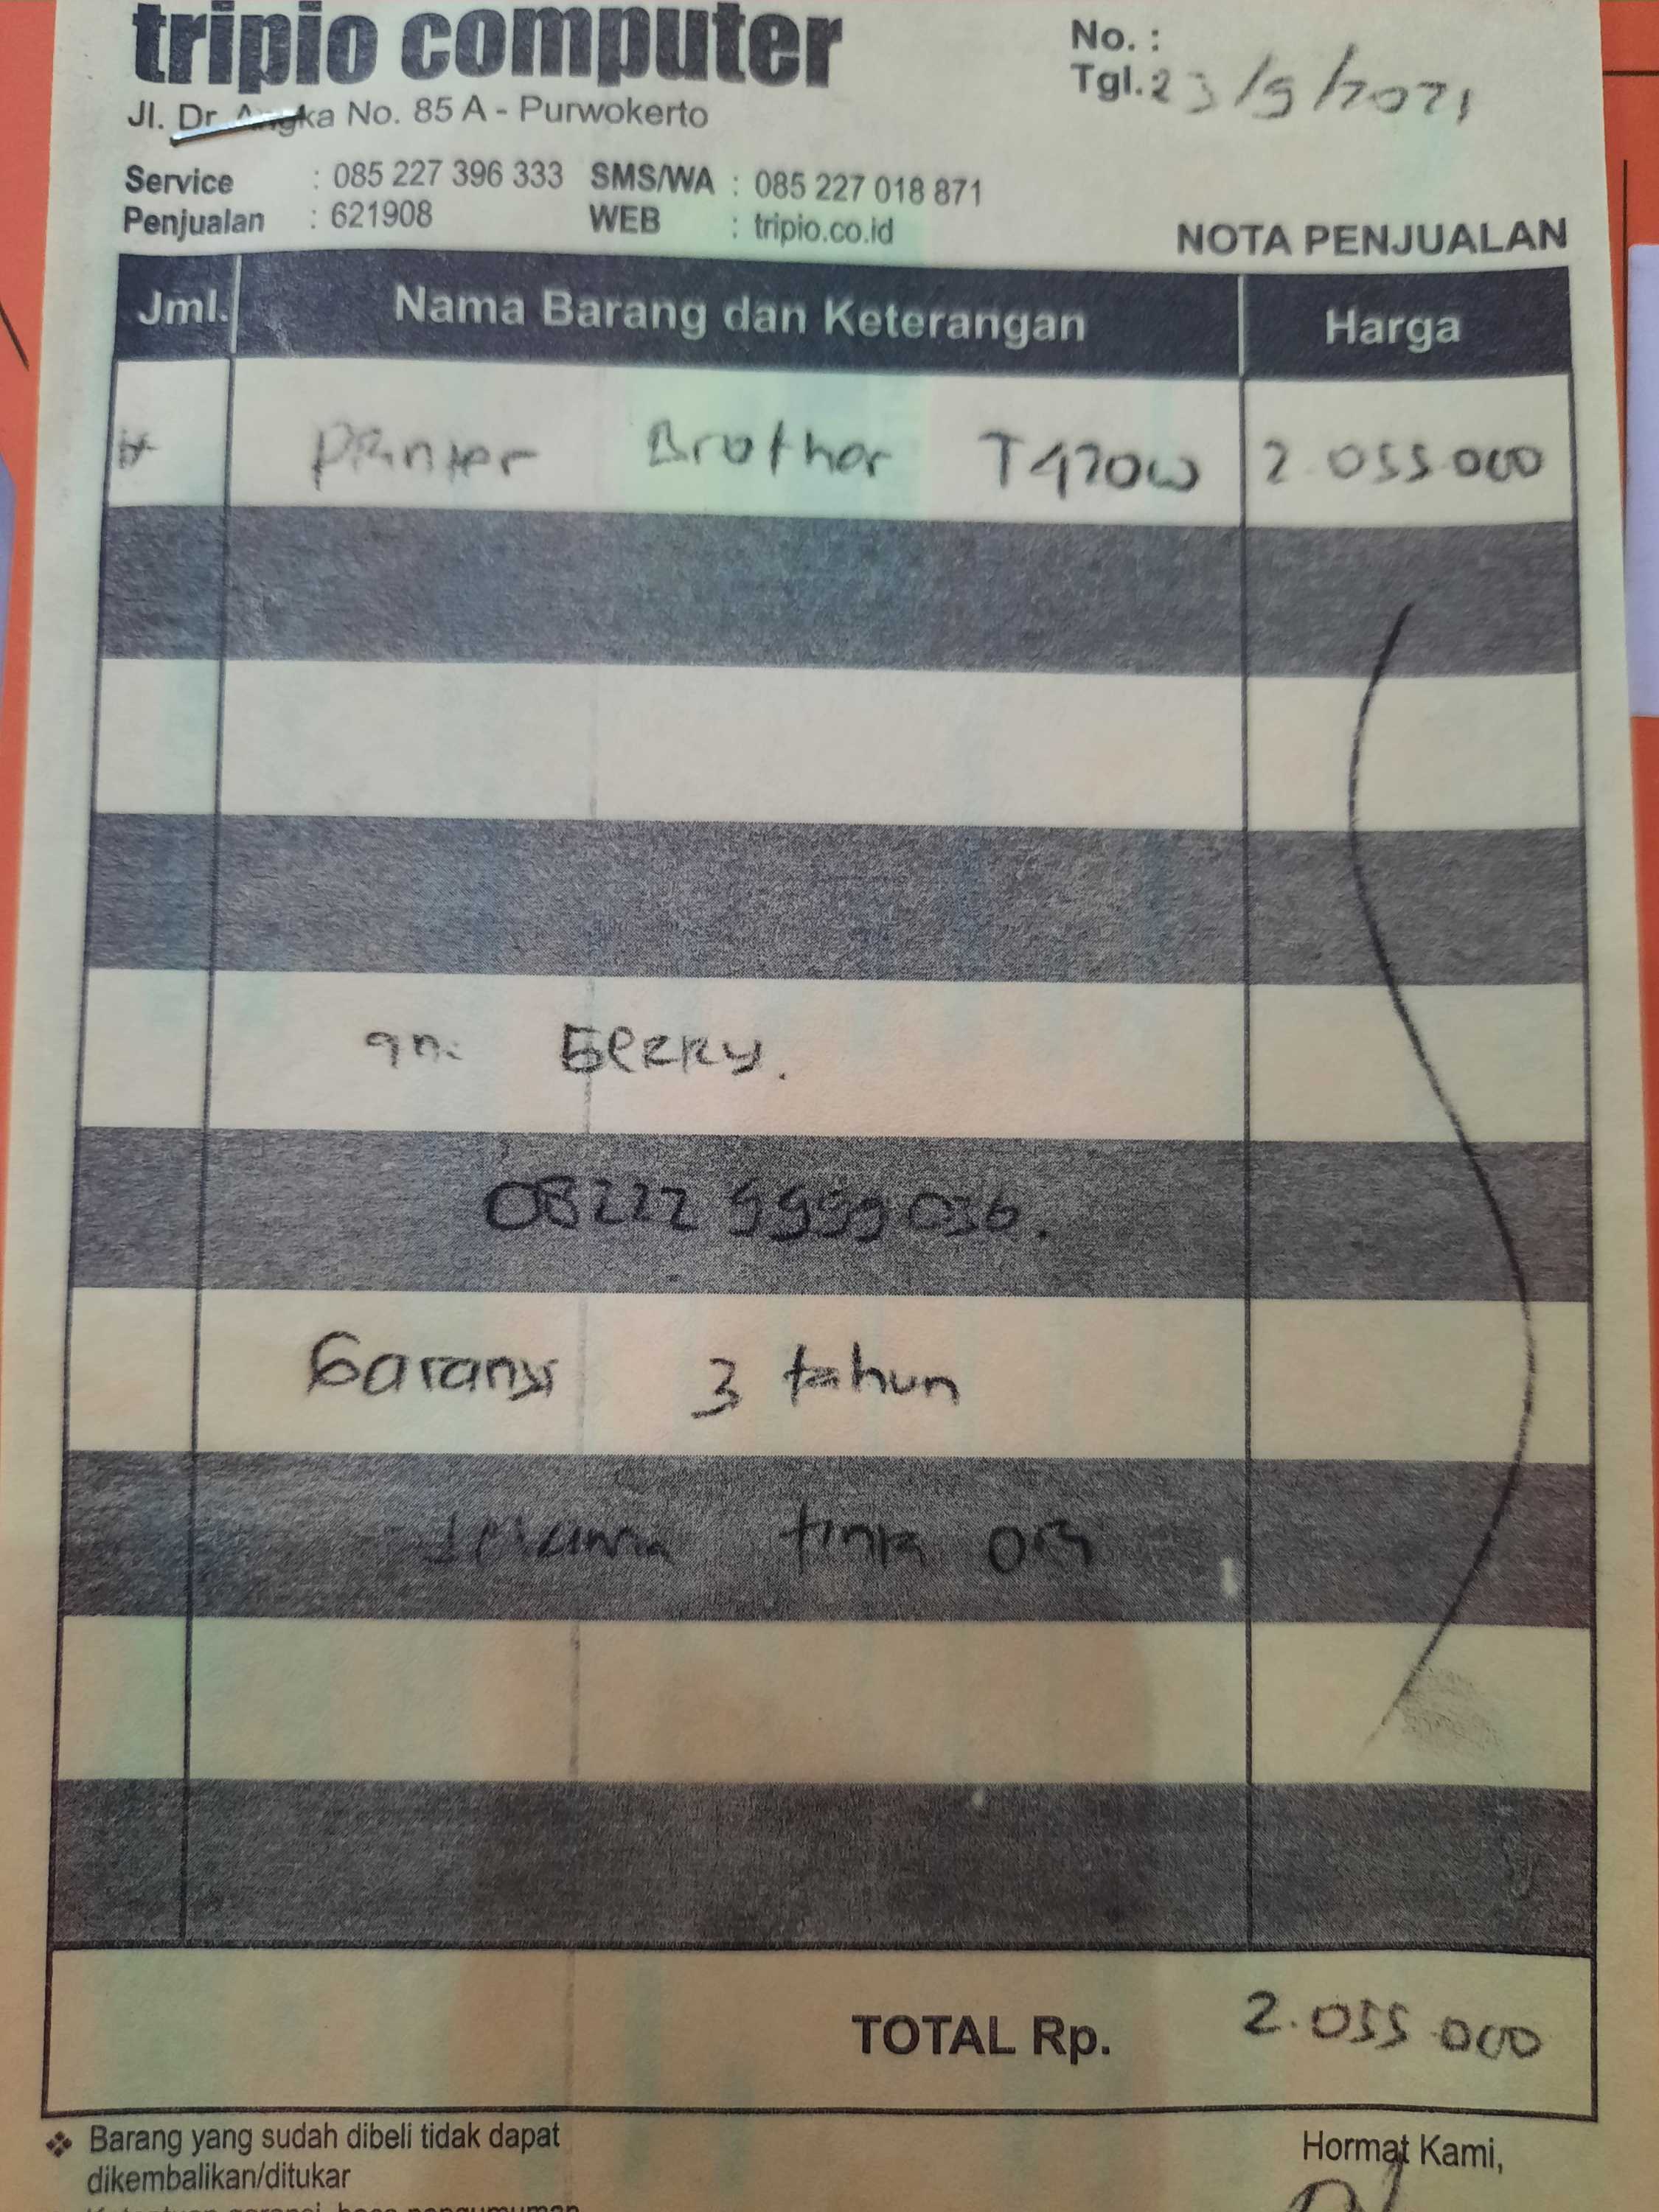 tripio computer
No. :
Tgl. 23/9/2021
Jl. Dr. Angka No. 85 A - Purwokerto
Service : 085 227 396 333 SMS/WA : 085 227 018 871
Penjualan : 621908 WEB : tripio.co.id
NOTA PENJUALAN
Jml. Nama Barang dan Keterangan Harga
Printer Brother T420W 2.055.000
an. 
08222 9999036.
Garansi 3 tahun
tinta ori
TOTAL Rp. 2.055.000
❖ Barang yang sudah dibeli tidak dapat
dikembalikan/ditukar
Hormat Kami,